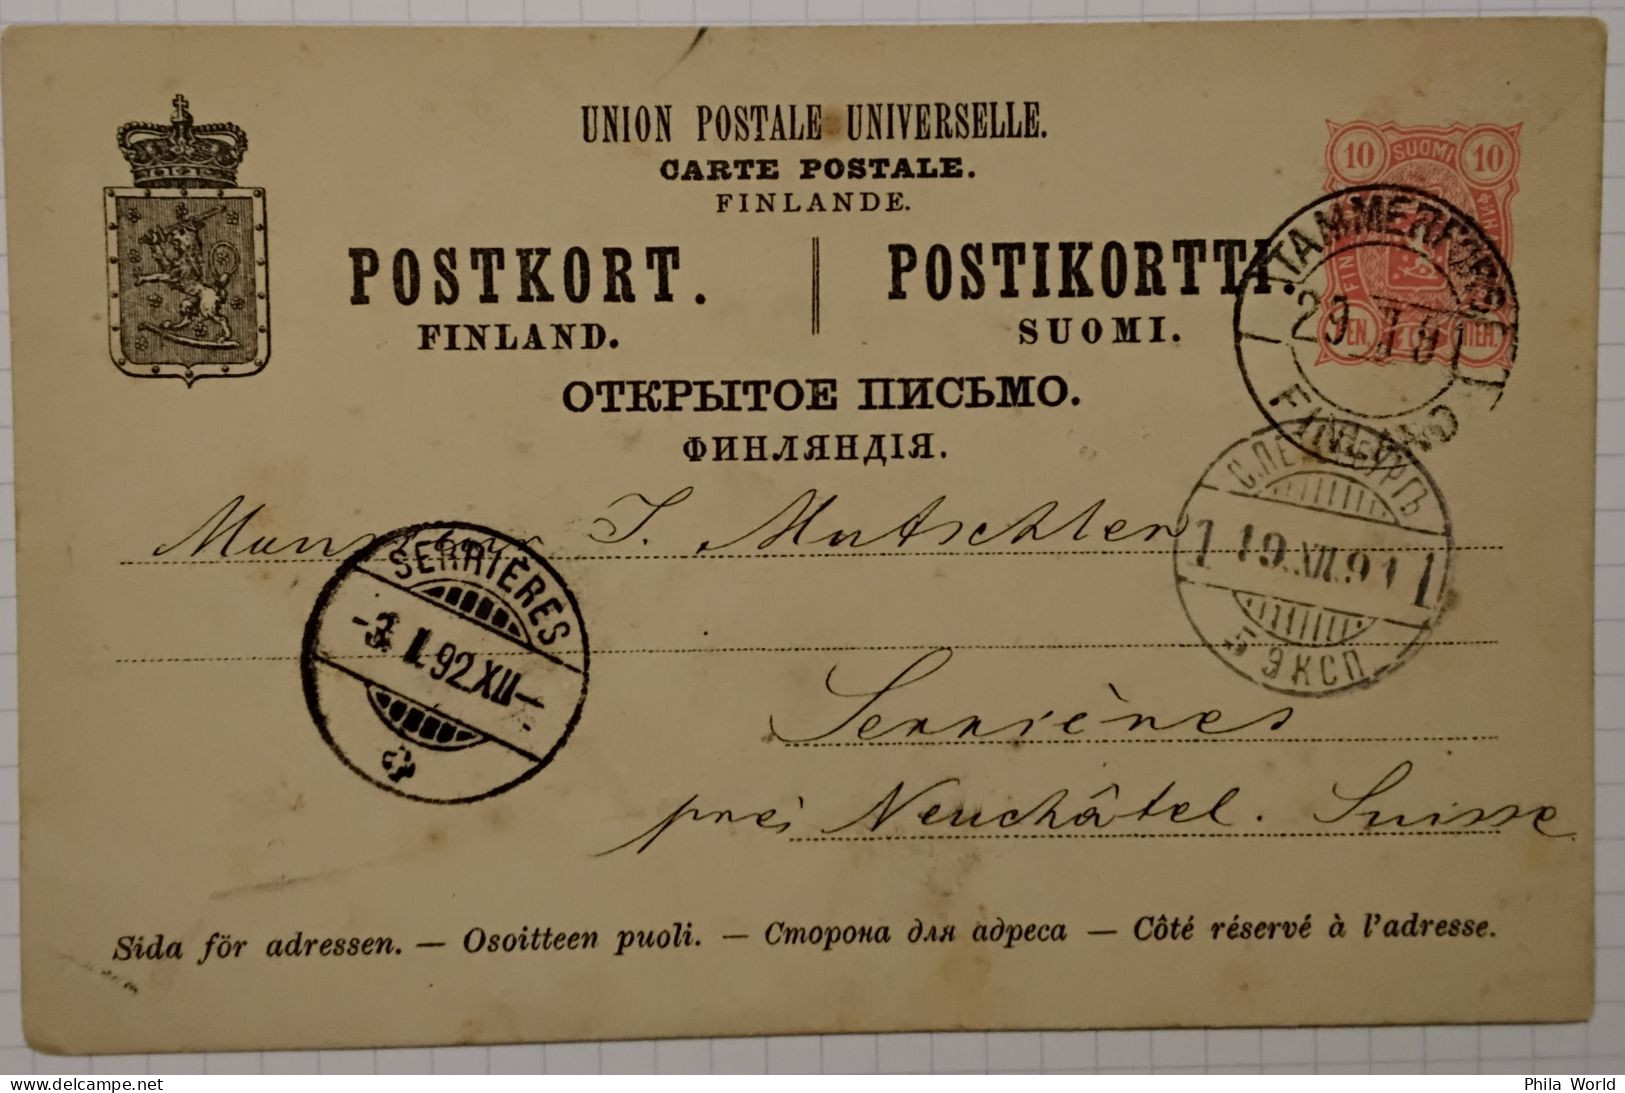 UNION POSTALE UNIVERSELLE.
CARTE POSTALE.
FINLANDE.
POSTKORT. POSTIKORTTI.
FINLAND. SUOMI.
ОТКРЫТОЕ ПИСЬМО.
ФИНЛЯНДІЯ.
10 SUOMI 10
TAMMERFORS
29
FINLAND
С.ПЕТЕРБУРГЪ
1 19.XII.91 1
ЭКСП
SERRIÈRES
-3. I. 92.XII-
Monsieur J. Mutschler
Serrières
près Neuchâtel. Suisse
Sida för adressen. — Osoitteen puoli. — Сторона для адреса — Côté réservé à l'adresse.
www.delcampe.net
Phila World